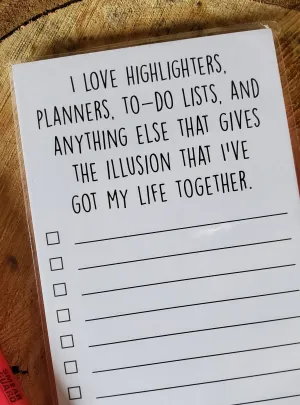 I LOVE HIGHLIGHTERS,
PLANNERS, TO-DO LISTS, AND
ANYTHING ELSE THAT GIVES
THE ILLUSION THAT I'VE
GOT MY LIFE TOGETHER.